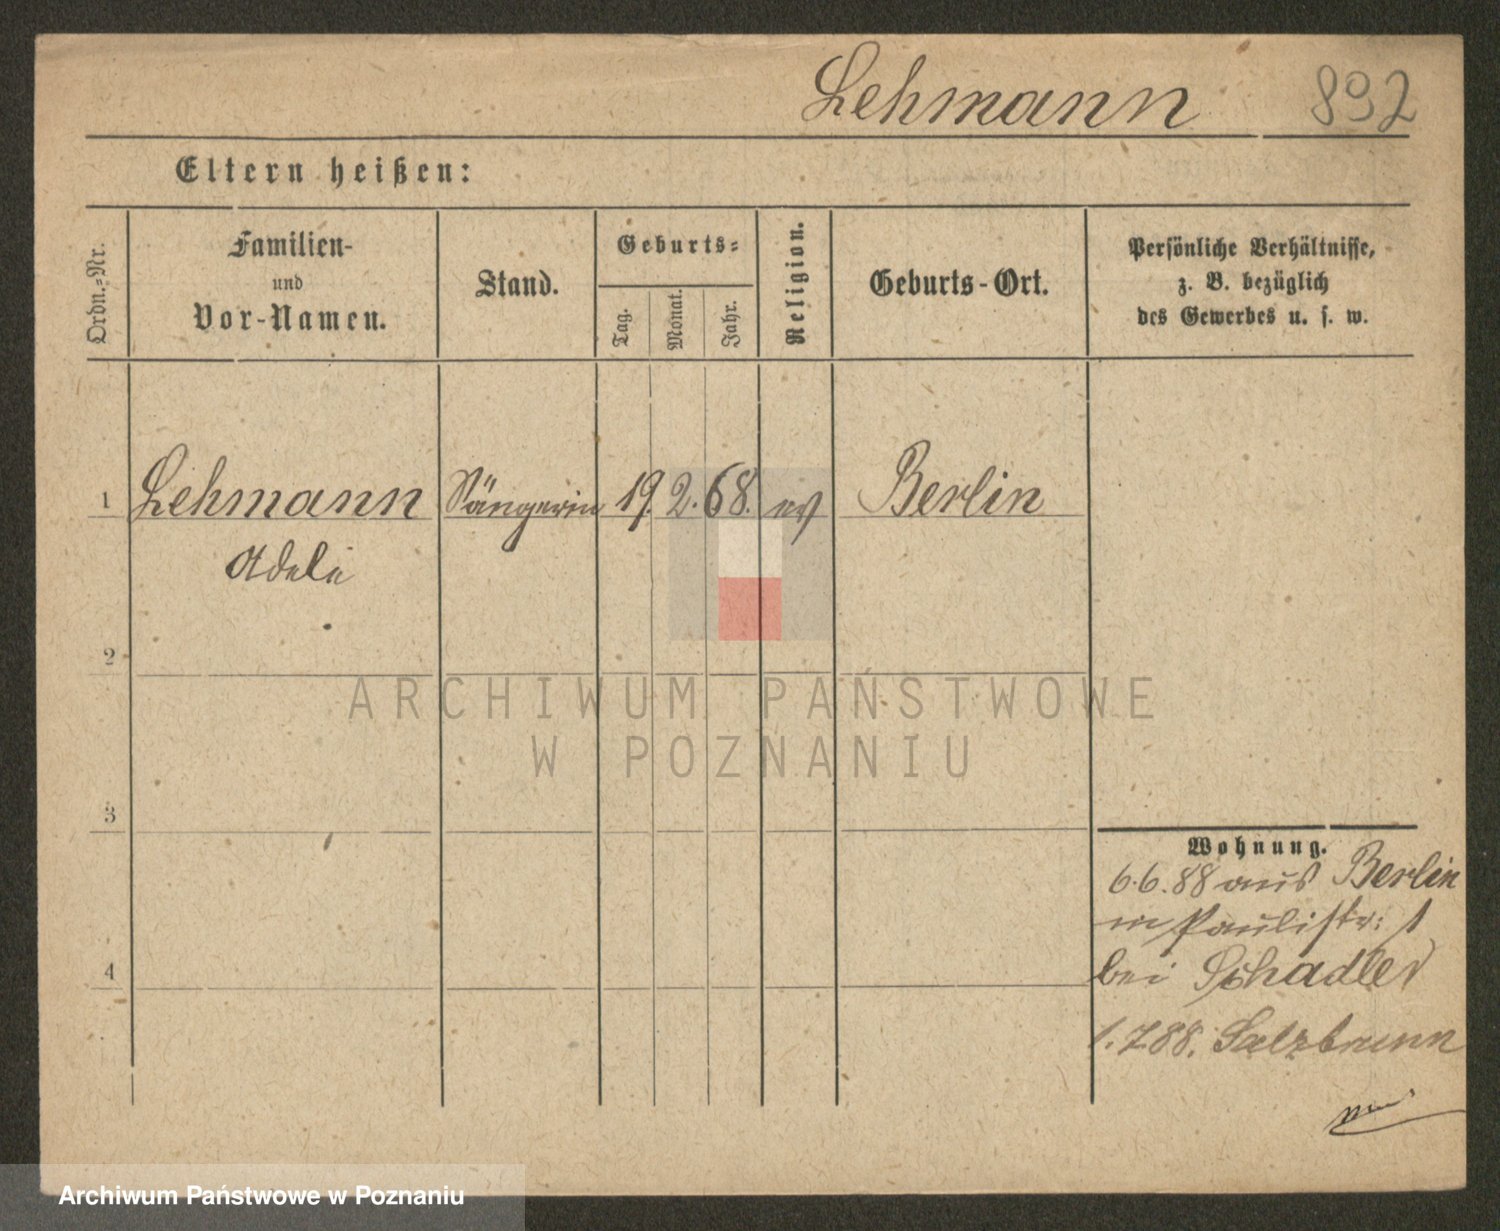 Lehmann 892
Eltern heißen:
Ordn.-Nr.
Familien-
und
Vor-Namen.
Stand.
Geburts-
Tag.
Monat.
Jahr.
Religion.
Geburts-Ort.
Persönliche Verhältnisse,
z. B. bezüglich
des Gewerbes u. s. w.
1 Lehmann Sängerin 19. 2. 68. ev Berlin
Adele
2
3
4
Wohnung.
6.6.88 aus Berlin
Paulistr: 1
bei Schadler
1.7.88. Salzbrunn
ARCHIWUM PAŃSTWOWE
W POZNANIU
Archiwum Państwowe w Poznaniu